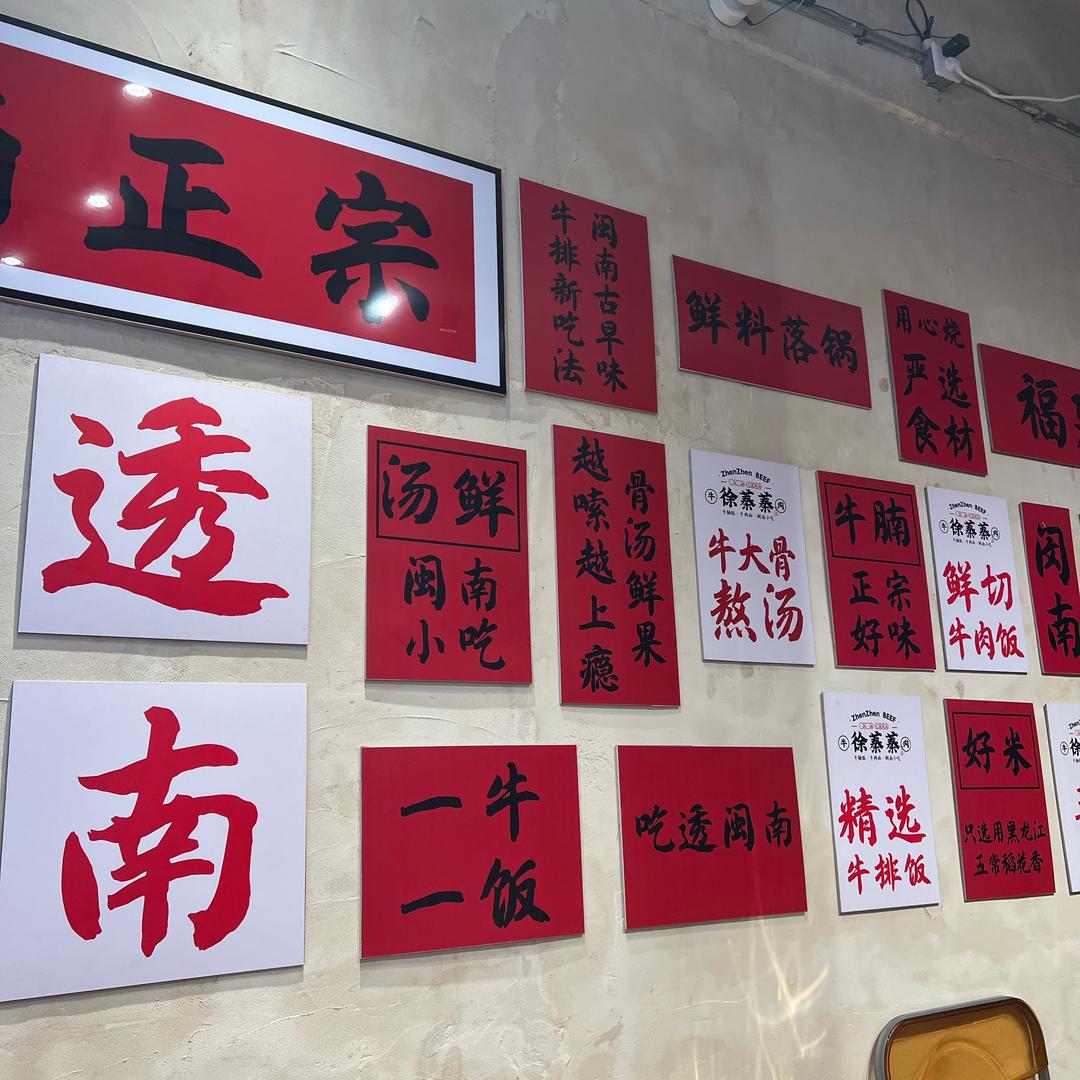 正宗
闽南古早味
牛排新吃法
鲜料落锅
用心烧
严选
食材
福
透
汤鲜
闽南
小吃
骨汤鲜果
越嗦越上瘾
ZhenZhen BEEF
牛 徐蓁蓁 肉
牛大骨
熬汤
牛腩
正宗
好味
ZhenZhen BEEF
牛 徐蓁蓁 肉
鲜切
牛肉饭
闽
南
南
一牛
一饭
吃透闽南
ZhenZhen BEEF
牛 徐蓁蓁 肉
精选
牛排饭
好米
只选用黑龙江
五常稻花香